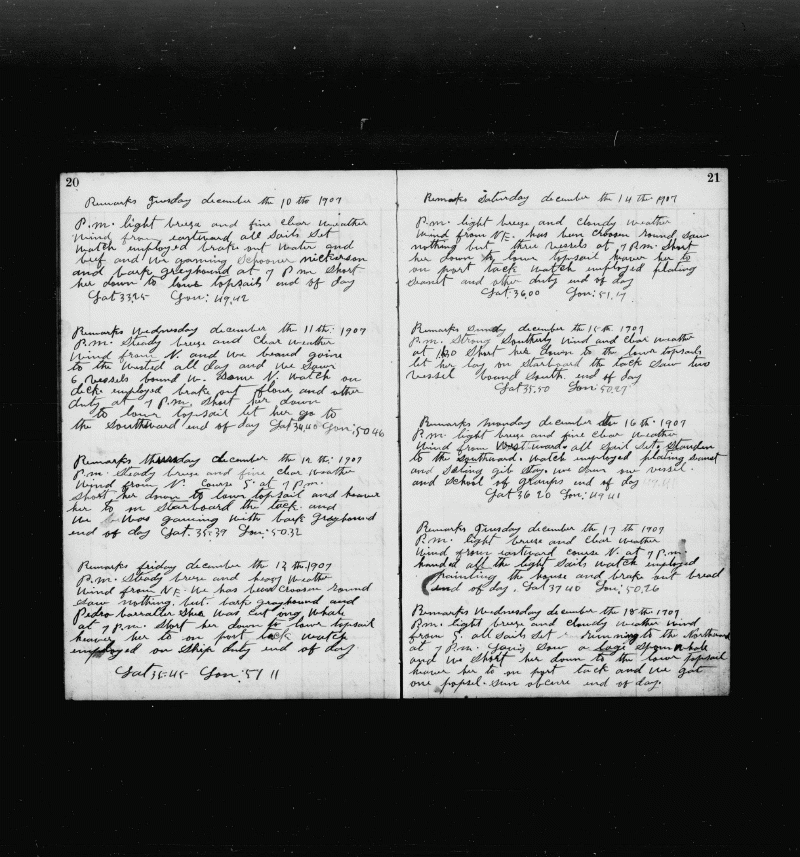 20
Remarks Tuesday december the 10 th 1907
P.m. light breese and fine clear weather
wind from eastward all sails set
watch employed brake out water and
beef and we gamming schooner nickerson
and bark greyhound at 7 P m short
her down to lower topsails end of day
Lat 33.25 Lon: 49.42
Remarks Wednesday december the 11 th. 1907
P.m. Steady breese and Clear weather
Wind from N. and we bound goine
to the wested all day and we saw
6 vessels bound W. some N. watch on
deck employed brake out flour and other
duty at 7 P.m. short her down
to lower topsail let her go to
the Southward end of day Lat 34.40 Lon: 50 46
Remarks thursday december the 12 th. 1907
P.m. Steady breese and fine clear weather
Wind from N. Course S. at 7 P.m.
short her down to lower topsail and heaver
her to on Starboard the tack and
we was gaming with bark greyhound
end of day Lat. 35.39 Lon: 50.32
Remarks friday december the 13 th 1907
P.m. Steady breese and heavy weather
Wind from N.E. We has been croosen round
saw nothing but bark greyhound and
Pedro varraller she was cut ong whale
at 7 P.m. Short her down to lower topsail
heaver her to on port tack watch
employed on ship duty end of day
Lat 35-45 Lon: 51 11
21
Remarks Saturday december the 14 th. 1907
P.m. light breese and cloudy weather
Wind from N.E. has been croosen round saw
nothing but three vessels at 7 P.m. Short
her down to lower topsail heaver her to
on port tack watch employed plating
seanet and other duty end of day
Lat 36,00 Lon: 51,17
Remarks Sunday december the 15 th. 1907
P.m. Strong Southerly wind and clear weather
at 1.30 Short her down to the lower topsails
let her lay on Starboard the tack saw two
vessel bound South end of day
Lat 35.50 Lon: 50.27
Remarks Monday december the 16 th. 1907
P.m. light breese and fine clear weather
Wind from West ward. all Sail Set. Standen
to the Southward. watch employed plating sanet
and seting gib stay. we saw one vessel.
and school of gramps end of day
Lat 36 20 Lon: 49 41
Remarks Tuesday december the 17 th 1907
P.m. light breese and clear weather
Wind from eastward course N. at 7 P.m.
handed all the light sails watch employed
painting the house and brake out bread
end of day. Lat 37 40 Lon: 50.26
Remarks Wednesday december the 18 th. 1907
P.m. light breese and cloudy weather wind
from S. all sails Set running to the Northward
at 7 P.m. Louis saw a large Sperm whale
and we short her down to the lower topsail
heaver her to on port tack and we got
one popsel. sun obcure end of day.